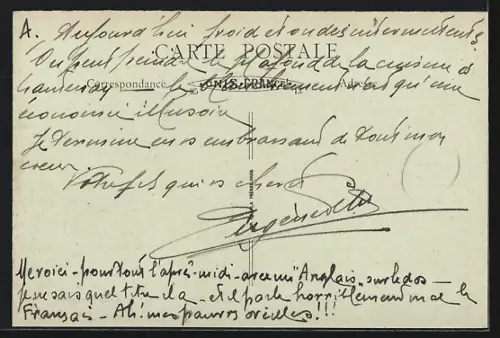 A. Aujourd'hui froid et ondes intermittentes
CARTE POSTALE
On peut peindre le plafond de la cuisine à
Correspondance Adresse
Chantenay le n'est qu'une
économie illusoire
Je termine en vs embrassant de tout mon
cœur.
Votre fils qui vs chérit
Me voici - pour tout l'après-midi - avec un Anglais sur le dos -
je ne sais quel titre il a - et il parle horriblement mal le
Français - Ah! mes pauvres oreilles!!!